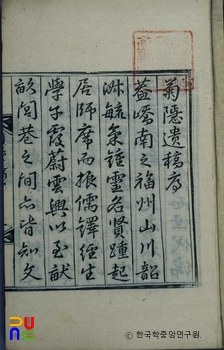 菊隱遺稿序
蓋嶠南之福州山川韶
淋毓氣鍾靈名賢踵起
居師席而振儒鐸經生
學子霞蔚雲興以至猷
畝閭巷之間亦皆知文
한국학중앙연구원